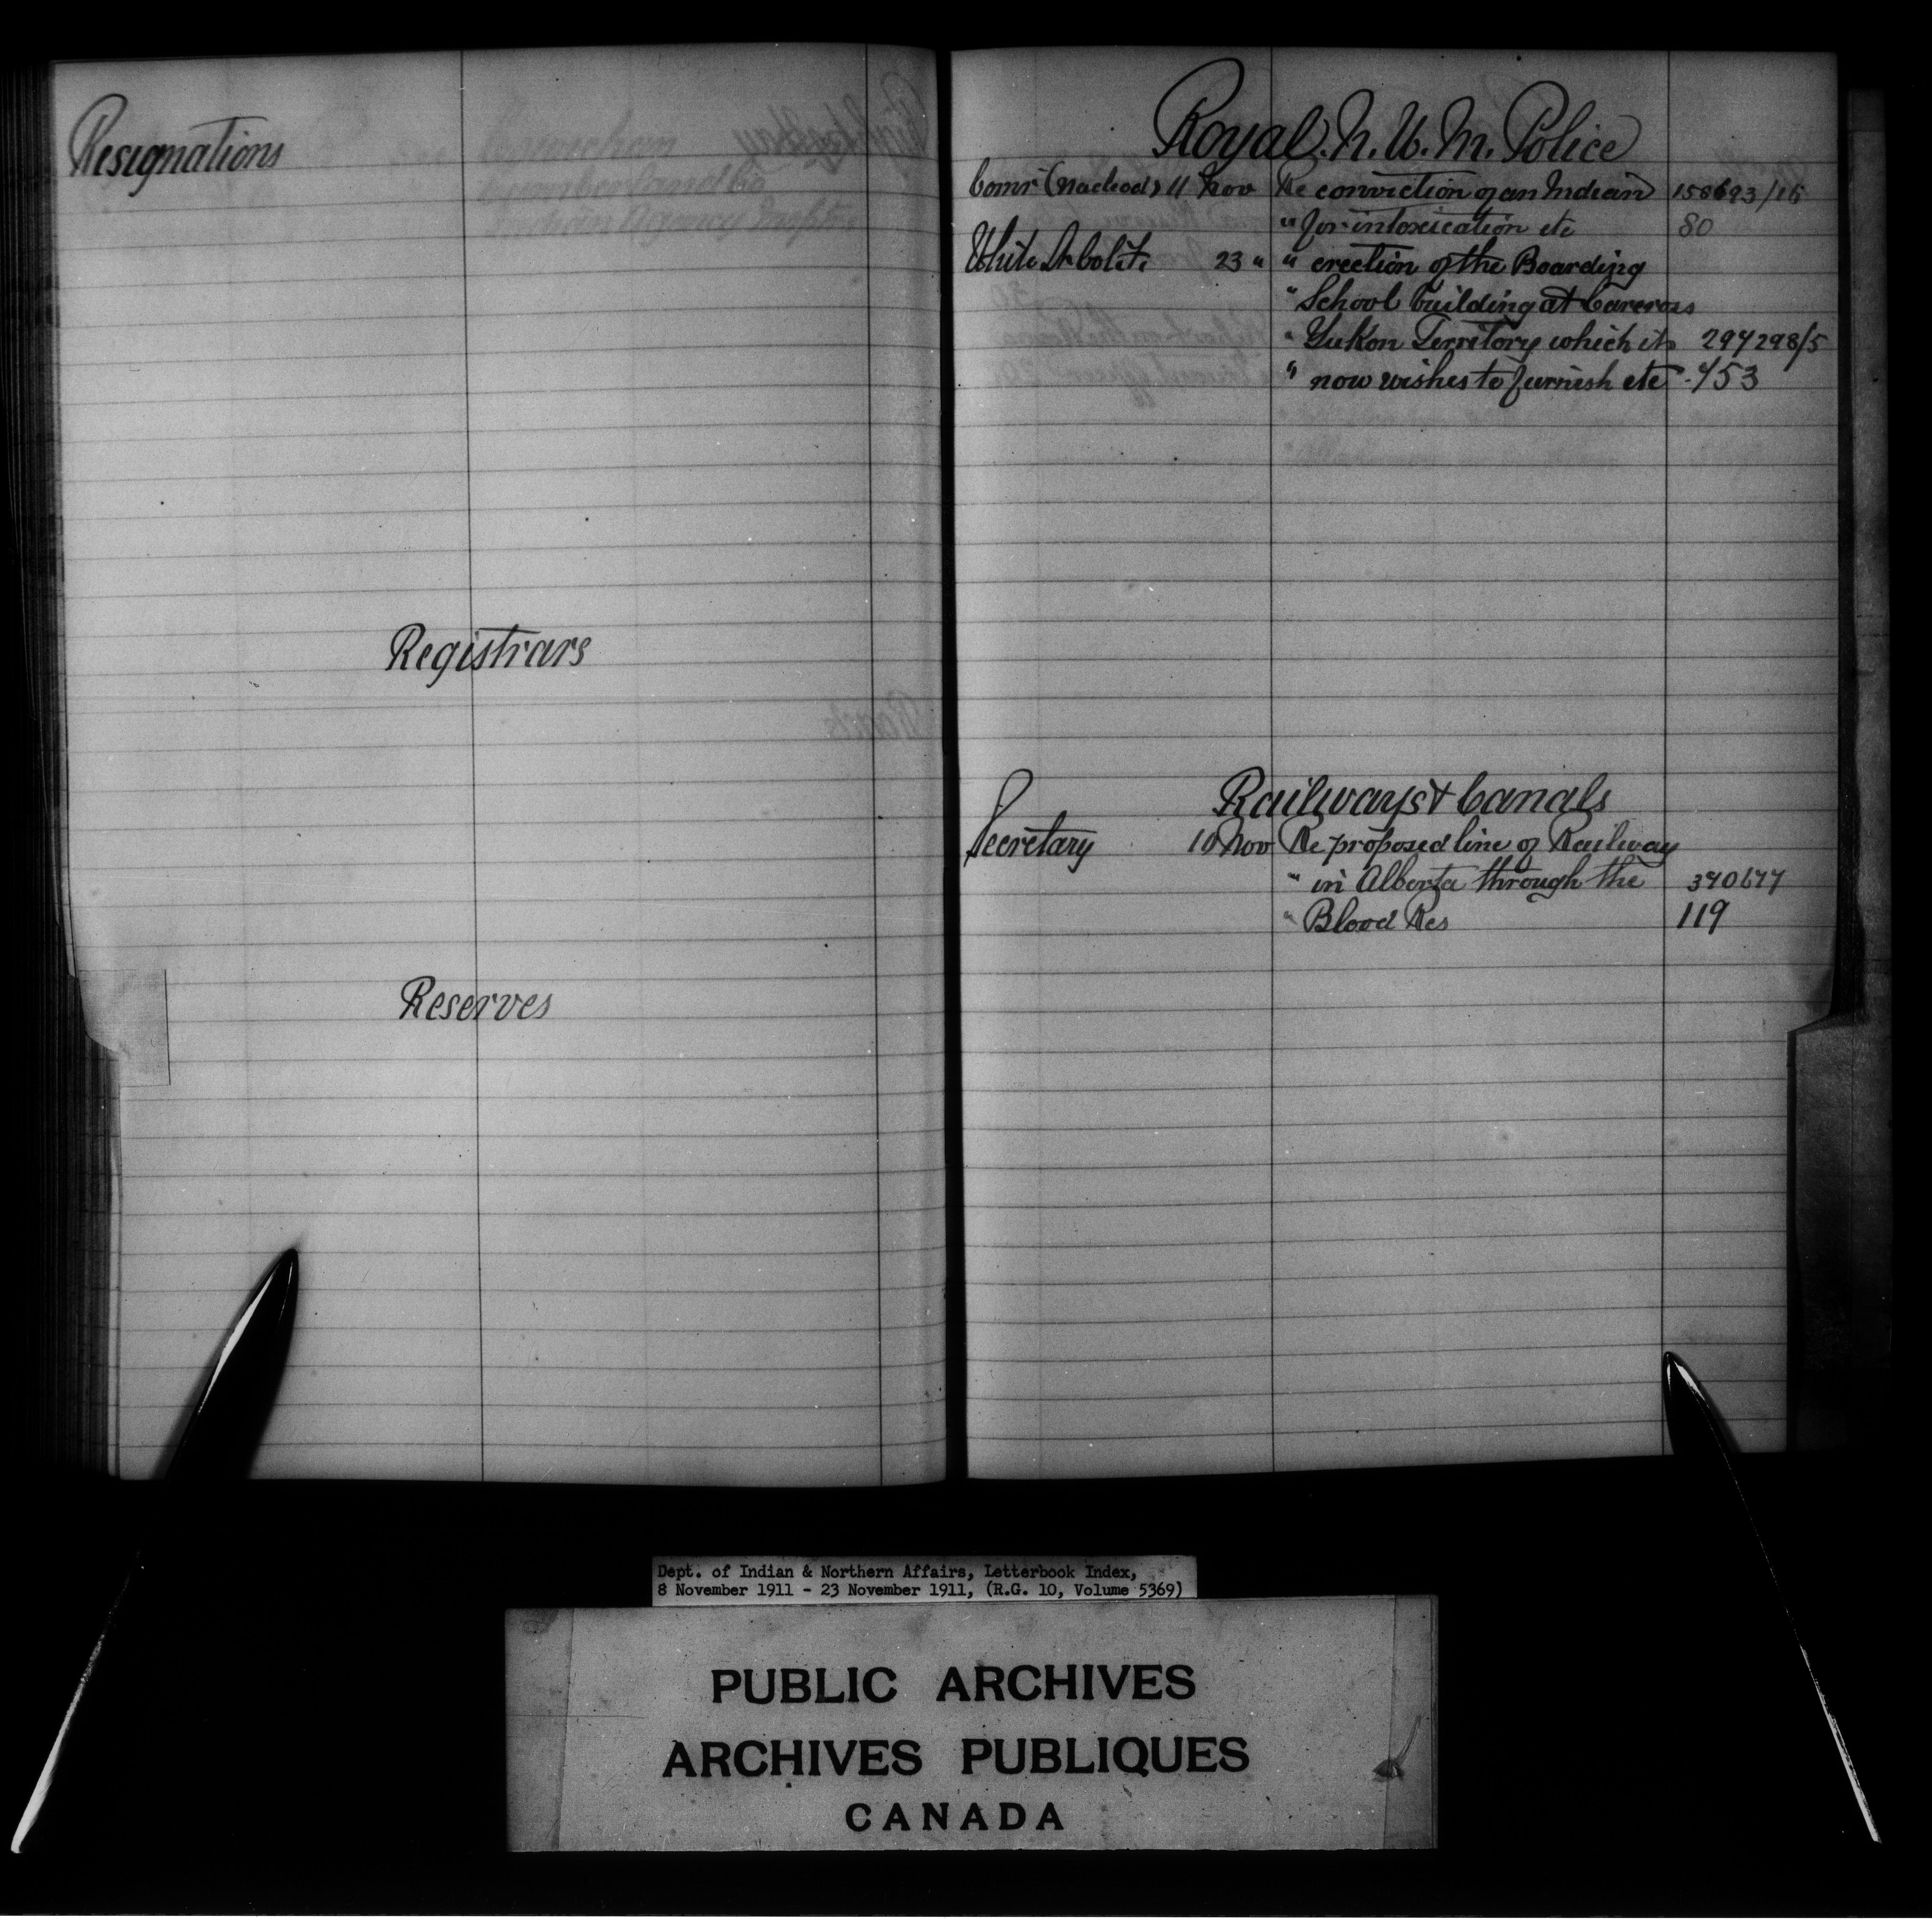 Resignations
Registrars
Reserves
Royal. N. W. M. Police
Comr (Macleod) 11 Nov Re conviction of an Indian 158693/15
" for intoxication etc 80
White Arbolite 23 " " erection of the Boarding
" School building at Carcross
" Yukon Territory which it 297298/5
" now wishes to furnish etc 453
Railways & Canals
Secretary 10 Nov Re proposed line of Railway
" in Alberta through the 370677
" Blood Res 119
Dept. of Indian & Northern Affairs, Letterbook Index,
8 November 1911 - 23 November 1911, (R.G. 10, Volume 5369)
PUBLIC ARCHIVES
ARCHIVES PUBLIQUES
CANADA